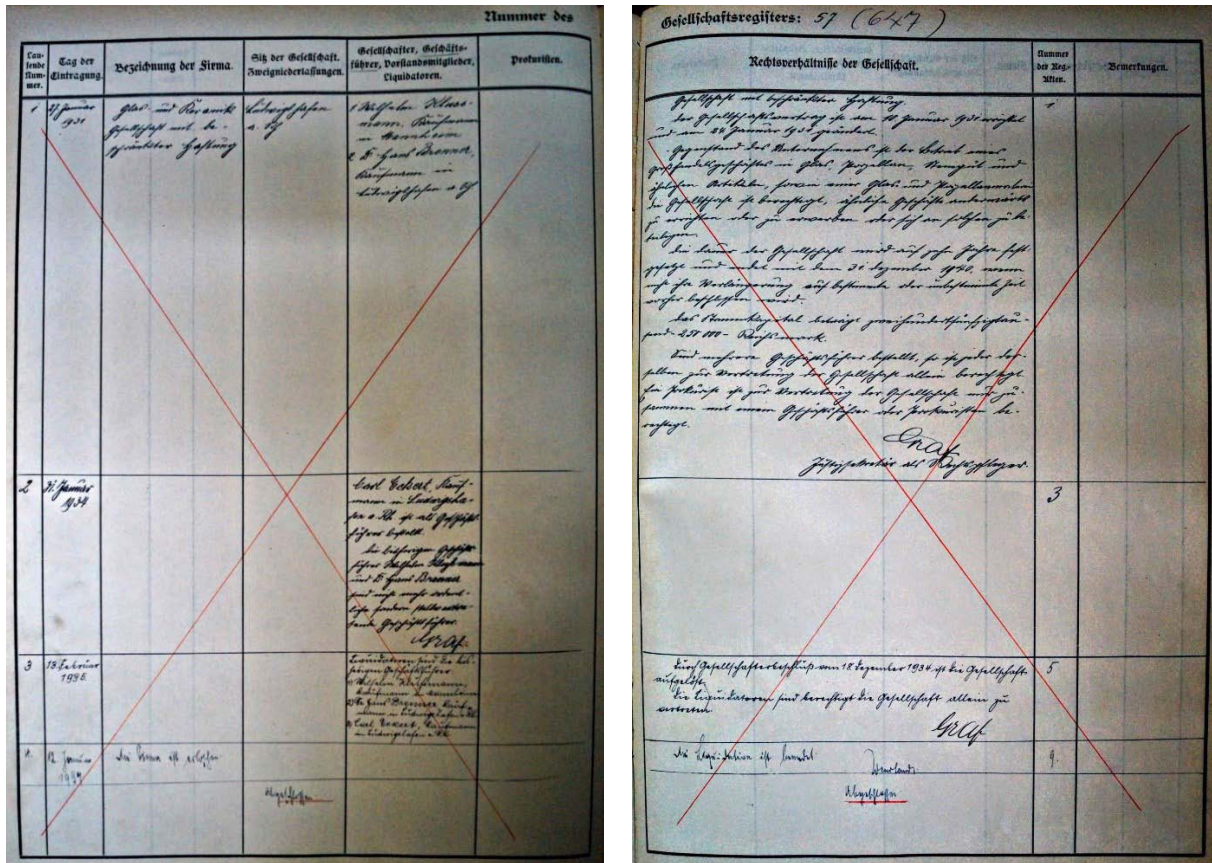 Nummer des
Laufende Nummer.
Tag der Eintragung.
Bezeichnung der Firma.
Sitz der Gesellschaft. Zweigniederlassungen.
Gesellschafter, Geschäftsführer, Vorstandsmitglieder, Liquidatoren.
Prokuristen.
1
27. Januar
1931
Glas- und Keramik
Gesellschaft mit be-
schränkter Haftung
Ludwigshafen
a. Rh
1 Wilhelm
mann, Kaufmann
in Mannheim
2 Dr Hans Brenner,
Kaufmann in
Ludwigshafen a Rh
2
31. Januar
1934
Carl Eckert, Kauf-
mann in Ludwigsha-
fen a. Rh. ist als Geschäfts-
führer bestellt.
Die bisherigen Geschäfts-
führer Wilhelm
und Dr Hans Brenner
sind nicht mehr ordent-
liche sondern stellvertre-
tende Geschäftsführer.
Graf
3
13. Februar
1935
Liquidatoren sind die bis-
herigen Geschäftsführer
Wilhelm
Kaufmann in Mannheim
2) Dr Hans Brenner Kauf-
mann in Ludwigshafen a. Rh.
3) Carl Eckert, Kaufmann
in Ludwigshafen a. Rh.
4.
12. Januar
Die Firma ist erloschen
Abgeschlossen
Gesellschaftsregisters: 57 (647)
Rechtsverhältnisse der Gesellschaft.
Nummer der Reg.-Akten.
Bemerkungen.
Gesellschaft mit beschränkter Haftung.
Der Gesellschaftsvertrag ist am Januar 1931 errichtet
und am 24 Januar 1931 geändert.
Gegenstand des Unternehmens ist der Betrieb eines
Großhandelsgeschäftes in Glas, Porzellan, Steingut und
ähnlichen Artikeln, sowie einer Glas- und Porzellanmalerei
Die Gesellschaft ist berechtigt, ähnliche Geschäfte anderwärts
zu errichten oder zu erwerben oder sich an solchen zu be-
teiligen.
Die Dauer der Gesellschaft wird auf zehn Jahre fest
gesetzt und endet mit dem 31 Dezember 1940, wenn
nicht ihre Verlängerung auf bestimmte oder unbestimmte Zeit
vorher beschlossen wird.
Das Stammkapital beträgt zweihundertfünfzigtau-
send - 250 000 - Reichsmark.
Sind mehrere Geschäftsführer bestellt, so ist jeder der-
selben zur Vertretung der Gesellschaft allein berechtigt
Ein Prokurist ist zur Vertretung der Gesellschaft nur zu-
sammen mit einem Geschäftsführer oder Prokuristen be-
rechtigt.
Graf
Justizsekretär als Rechtspfleger.
1
3
Durch Gesellschafterbeschluß vom 18. Dezember 1934 ist die Gesellschaft
aufgelöst.
Die Liquidatoren sind berechtigt die Gesellschaft allein zu
vertreten
Graf
5
Die Liquidation ist beendet
9.
Abgeschlossen